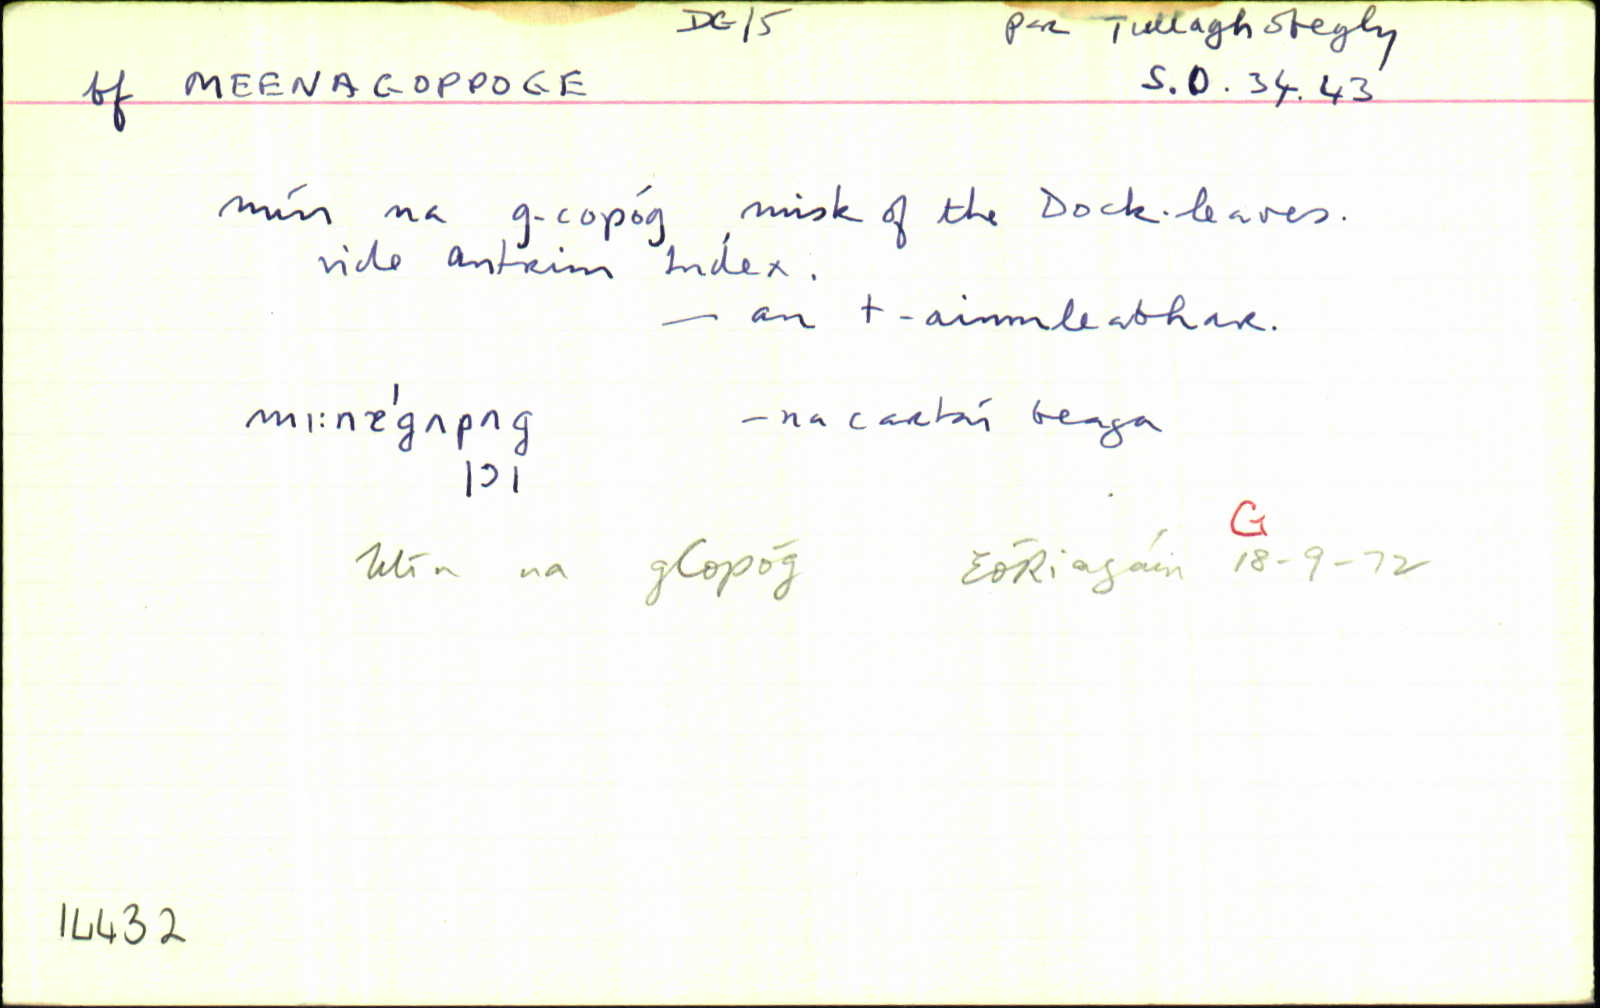 DG/5 par Tullaghobegly
bf MEENAGOPPOGE S.O. 34.43
mín na g-copóg, misk of the Dock-leaves.
vide Antrim Index.
— an t-ainmleabhar.
mı:nᴂˈgʌpʌg – na cartaí beaga
|ɔ|
G
Mín na gCopóg EÓRiagáin 18-9-72
14432